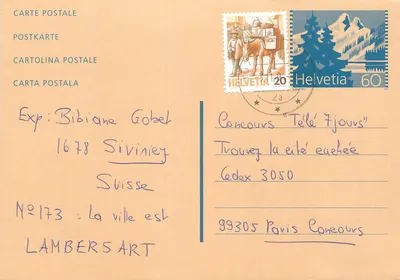 CARTE POSTALE
POSTKARTE
CARTOLINA POSTALE
CARTA POSTALA
HELVETIA 20
Helvetia 60
Exp: Bibiane Gobet
1678 Siviriez
Suisse
N° 173 : La ville est
LAMBERSART
Concours "Télé 7 jours"
Trouvez la cité cachée
Cedex 3050
99305 Paris Concours